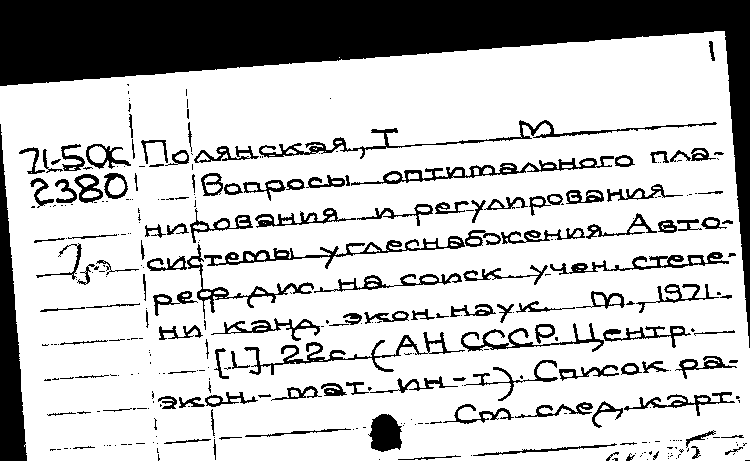 1
71-50к Полянская, Т М
2380 Вопросы оптимального пла-
нирования и регулирования
системы углеснабжения. Авто-
реф. дис. на соиск. учен. степе-
ни канд. экон. наук. М., 1971.
[1], 22с. (АН СССР. Центр.
экон.-мат. ин-т). Список ра-
См. след. карт.